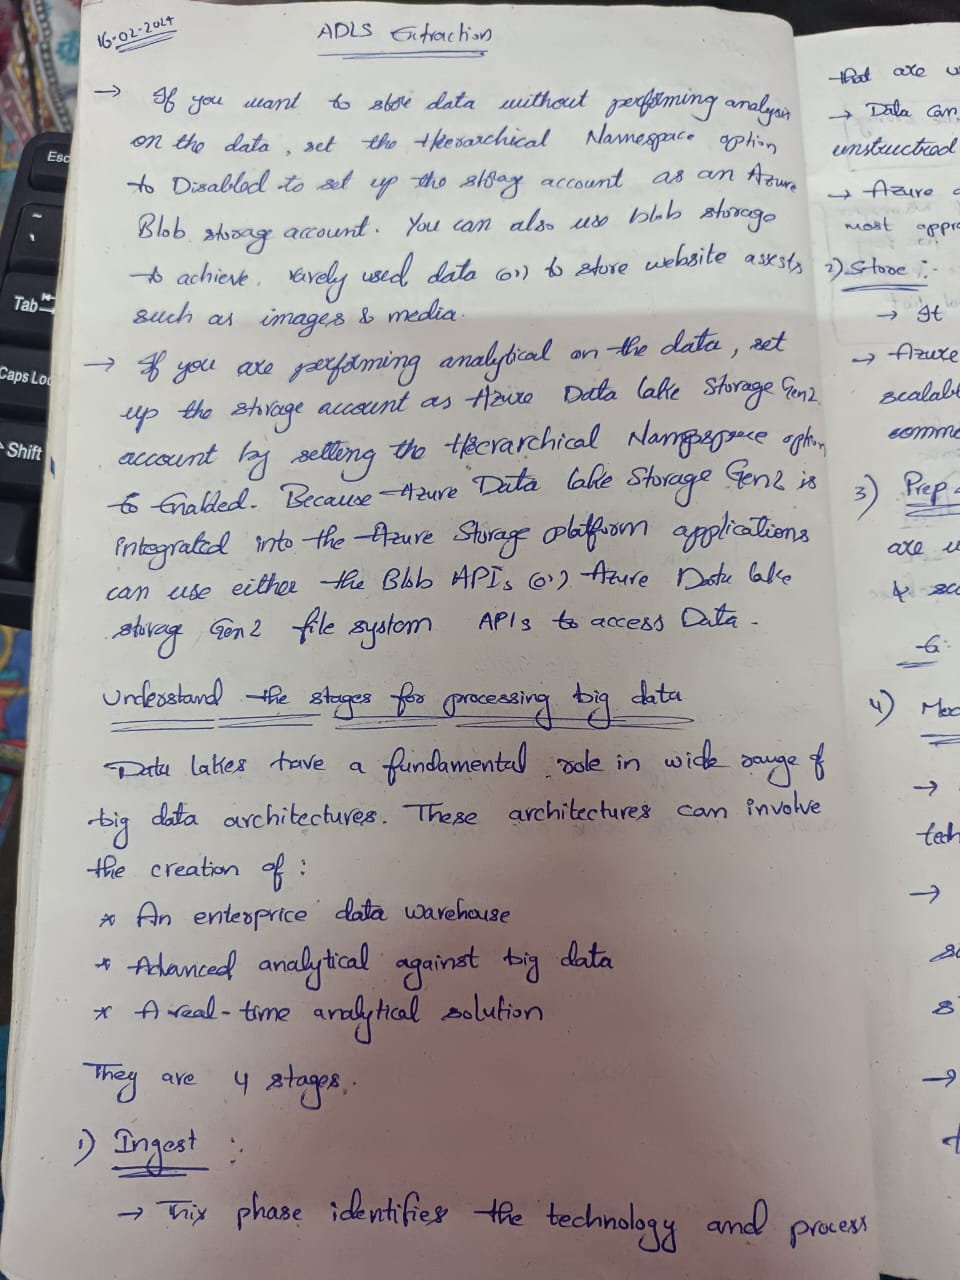 16-02-2024
ADLS Extraction
→ If you want to store data without performing analysis
on the data, set the Hierarchical Namespace option
to Disabled to set up the storag account as an Azure
Blob storag account. You can also use blob storage
to achieve. rarely used data (or) to store website assests
such as images & media.
→ If you are performing analytical on the data, set
up the storage account as Azure Data lake Storage Gen2
account by setting the Hierarchical Namespace option
to Enabled. Because Azure Data lake Storage Gen2 is
integrated into the Azure Storage platform applications
can use either the Blob APIs (or) Azure Data lake
storag Gen2 file system APIs to access Data.
Understand the stages for processing big data
Data lakes have a fundamental role in wide range of
big data architectures. These architectures can involve
the creation of :
* An enterprice data warehouse
* Advanced analytical against big data
* A real-time analytical solution
They are 4 stages.
1) Ingest :
→ This phase identifies the technology and process
that are
→ Data can
unstructred
→ Azure
most appro
2) Store :-
→ It
→ Azure
scalabl
comm
3) Prep
are u
&
4)
→
tech
→
→
Esc
~
Tab
Caps Loc
Shift